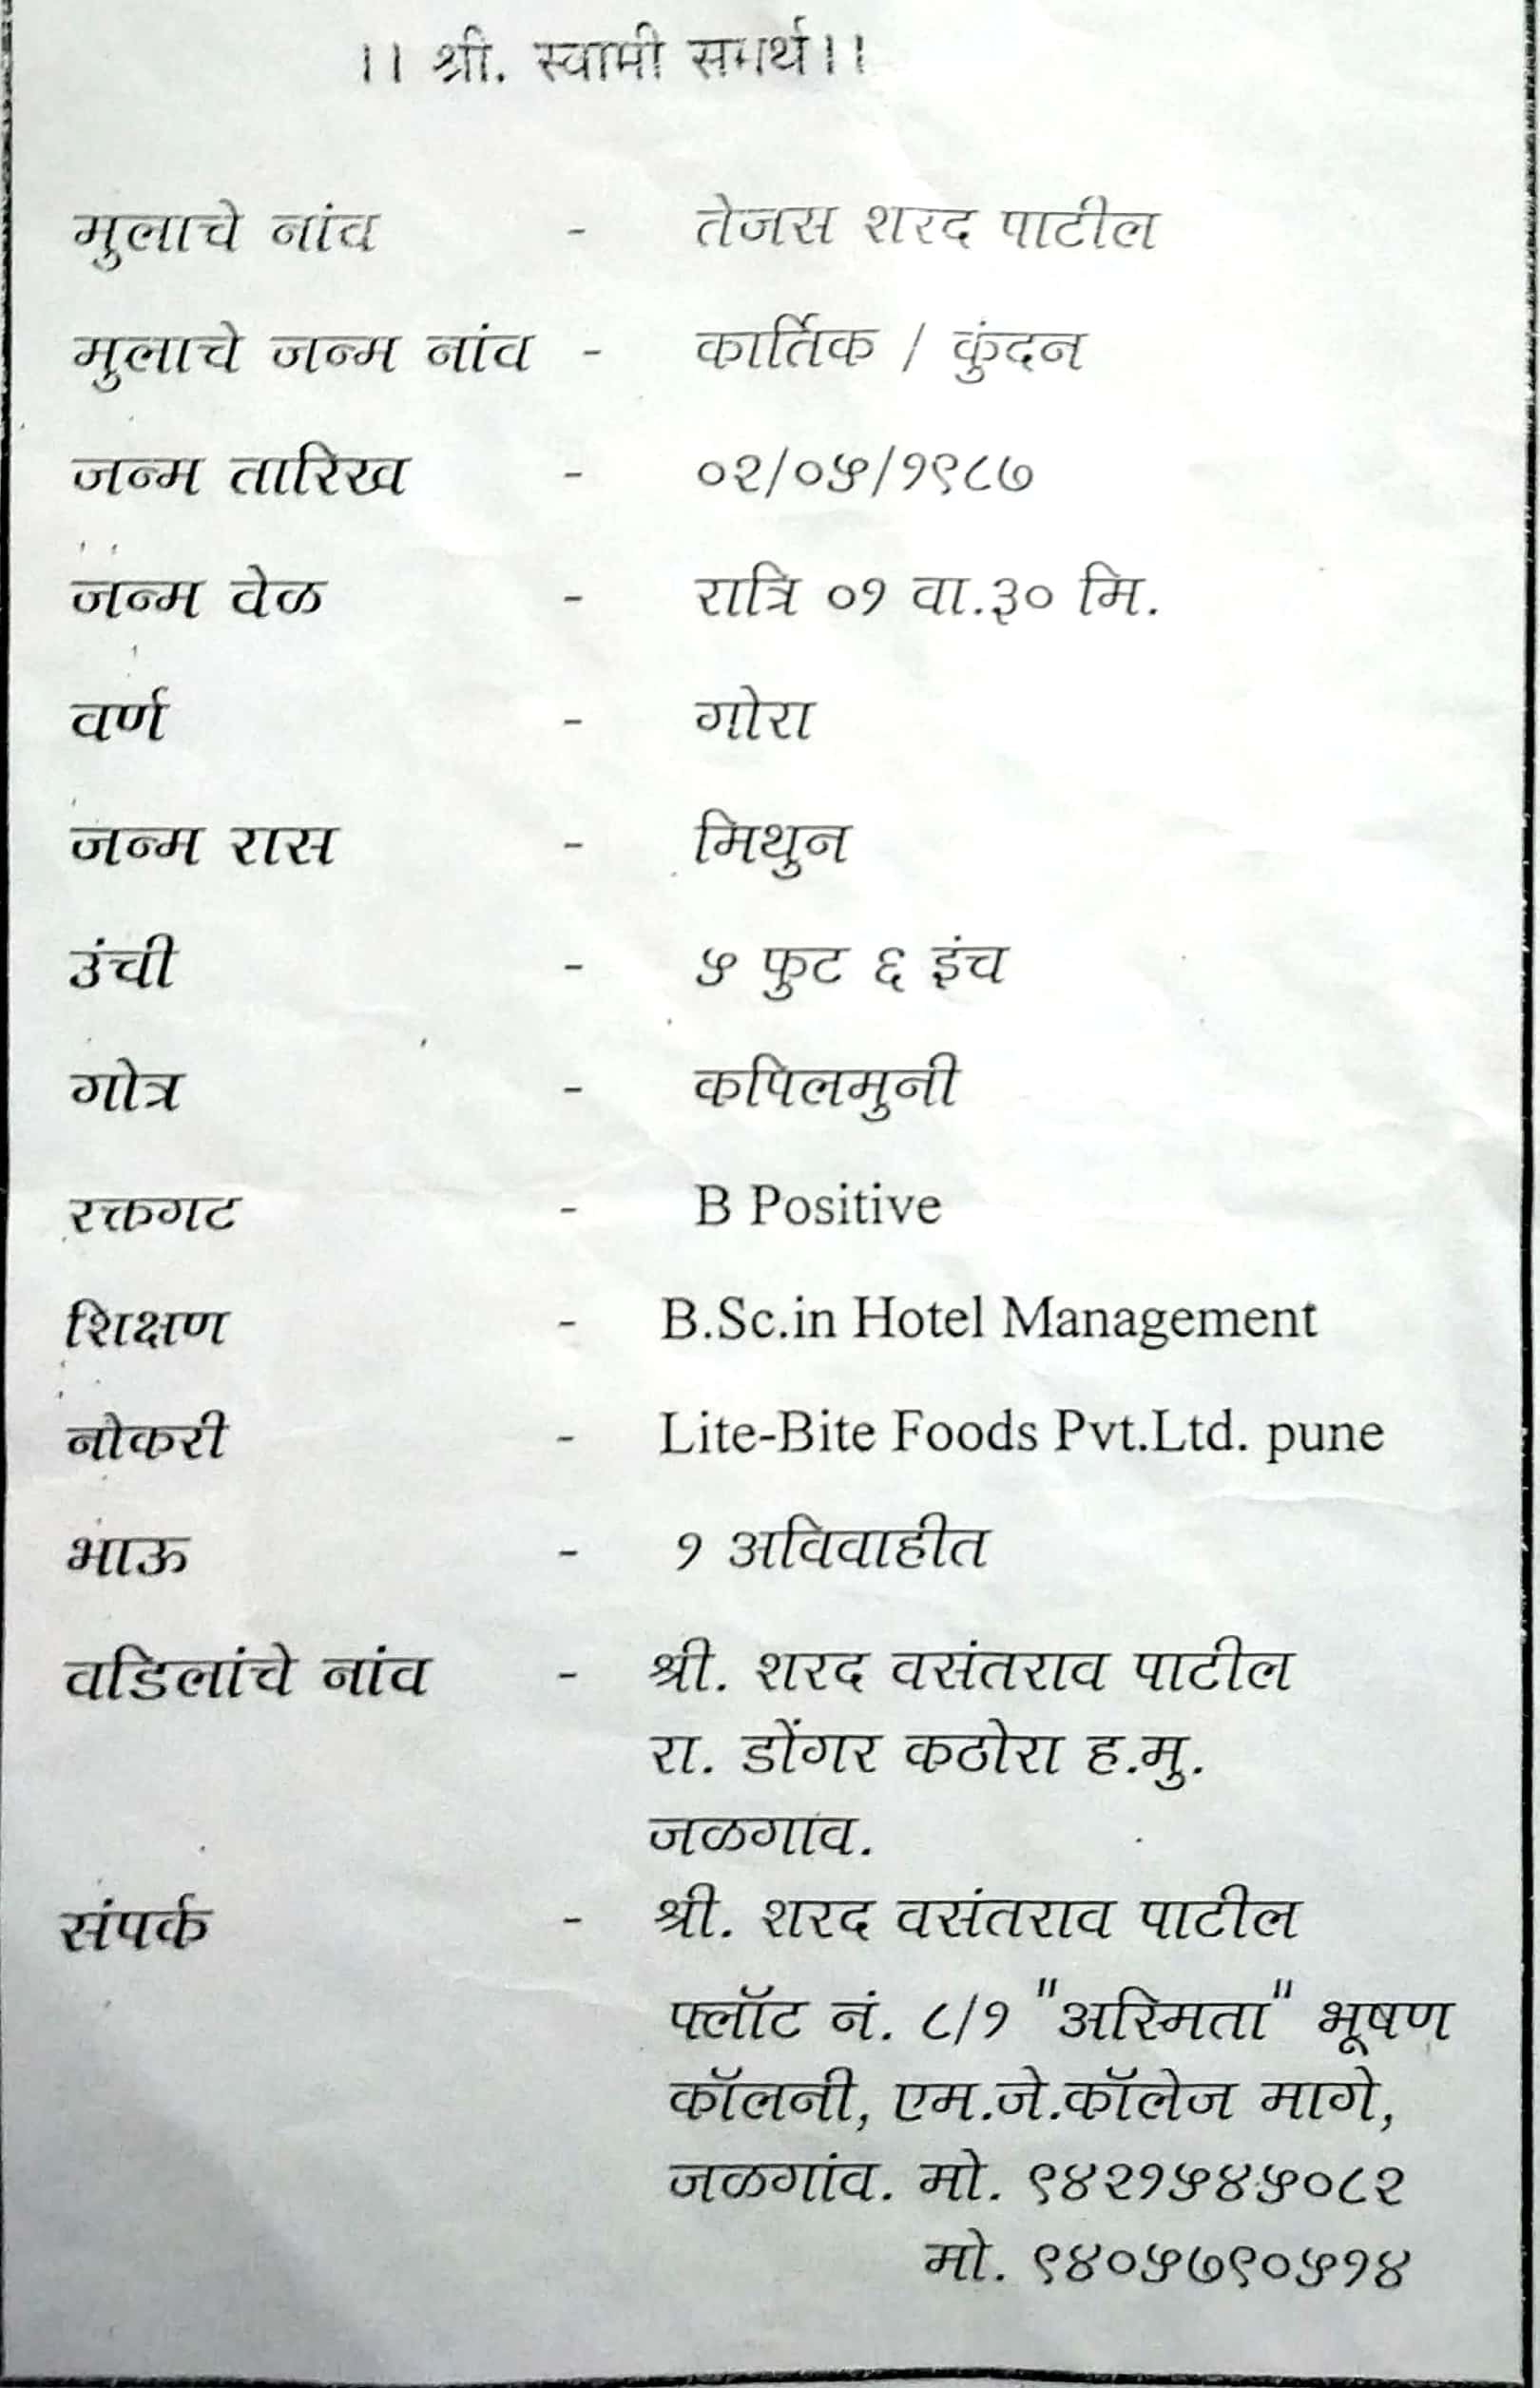 ।। श्री. स्वामी समर्थ।।
मुलाचे नांव - तेजस शरद पाटील
मुलाचे जन्म नांव - कार्तिक / कुंदन
जन्म तारिख - ०२/०५/१९८७
जन्म वेळ - रात्रि ०१ वा.३० मि.
वर्ण - गोरा
जन्म रास - मिथुन
उंची - ५ फुट ६ इंच
गोत्र - कपिलमुनी
रक्तगट - B Positive
शिक्षण - B.Sc.in Hotel Management
नोकरी - Lite-Bite Foods Pvt.Ltd. pune
भाऊ - १ अविवाहीत
वडिलांचे नांव - श्री. शरद वसंतराव पाटील
रा. डोंगर कठोरा ह.मु.
जळगाव.
संपर्क - श्री. शरद वसंतराव पाटील
प्लॉट नं. ८/१ "अस्मिता" भूषण
कॉलनी, एम.जे.कॉलेज मागे,
जळगांव. मो. ९४२१५४५०८२
मो. ९४०५७९०५१४